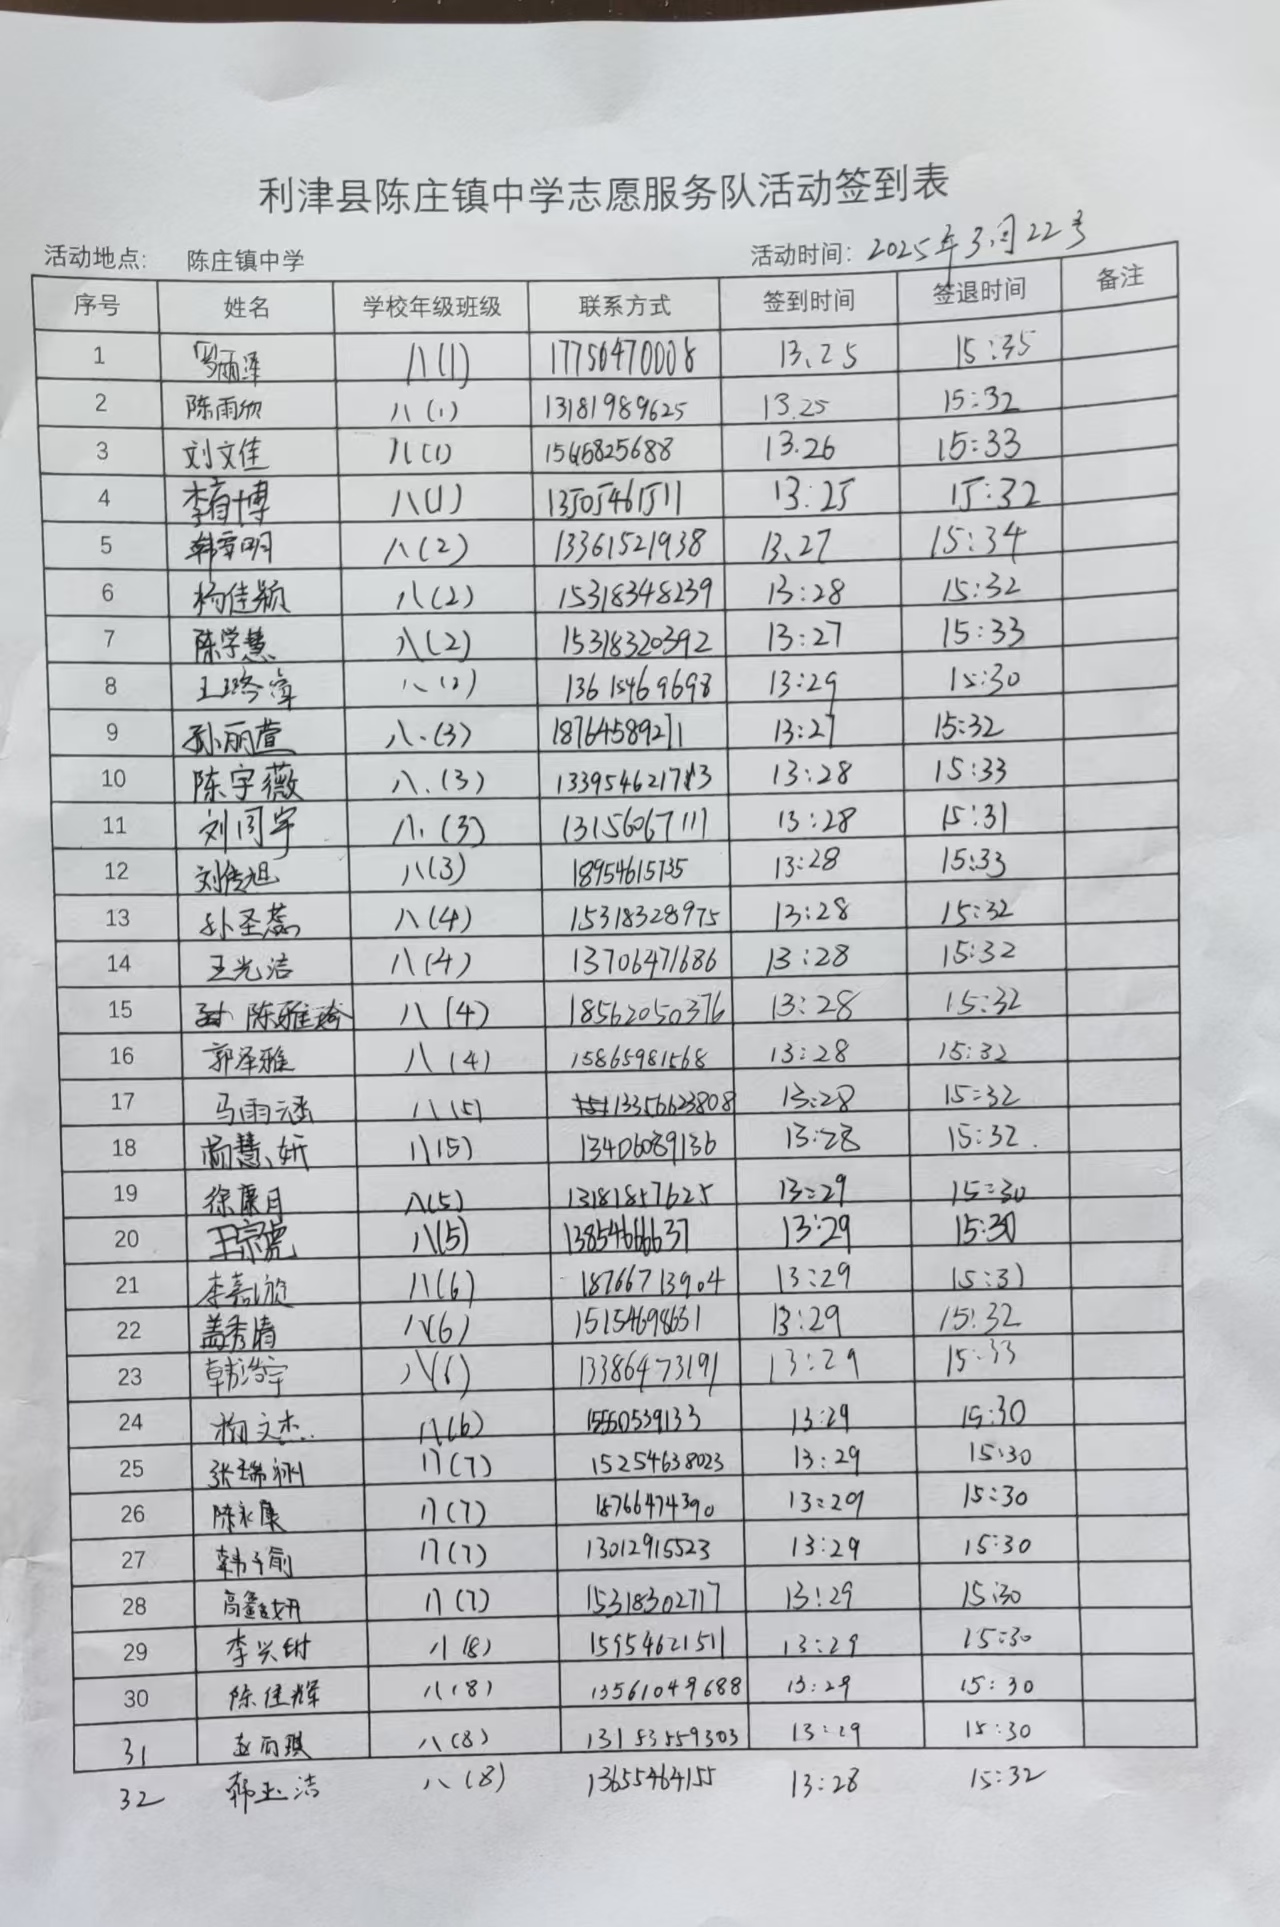 利津县陈庄镇中学志愿服务队活动签到表
活动地点: 陈庄镇中学 活动时间: 2025年3月22号
序号 姓名 学校年级班级 联系方式 签到时间 签退时间 备注
1 八(1) 17756470008 13.25 15:35
2 陈雨欣 八(1) 13181989625 13.25 15:32
3 刘文佳 八(1) 13.26 15:33
4 八(1) 13505461511 13:25 15:32
5 八(2) 13361521938 13.27 15:34
6 杨佳颖 八(2) 15318348239 13:28 15:32
7 陈学慧 八(2) 15318320392 13:27 15:33
8 13615469698 13:29 15:30
9 孙丽萱 八.(3) 18764589271 13:27 15:32
10 陈宇薇 八.(3) 13:28 15:33
11 刘同宇 八.(3) 13156067111 13:28 15:31
12 刘传旭 八(3) 18954615735 13:28 15:33
13 孙圣蕊 八(4) 15318328975 13:28 15:32
14 王光洁 八(4) 13706471686 13:28 15:32
15 八(4) 18562050376 13:28 15:32
16 郭泽雅 八(4) 15865981568 13:28 15:32
17 马雨涵 八(5) 13356623808 13:28 15:32
18 八(5) 13406089136 13:28 15:32.
19 徐康月 八(5) 13181857625 13:29 15:30
20 王宗虎 八(5) 13854666637 13:29 15:30
21 李嘉欣 八(6) 18766713904 13:29 15:31
22 盖秀清 八(6) 15154698651 13:29 15:32
23 韩浩宇 八(6) 13386473191 13:29 15:33
24 杨文杰 八(6) 15560539133 13:29 15:30
25 八(7) 15254638023 13:29 15:30
26 陈永康 八(7) 18766474390 13:29 15:30
27 韩子俞 八(7) 13012915523 13:29 15:30
28 八(7) 15318302717 13:29 15:30
29 李兴树 八(8) 15954621511 13:29 15:30
30 陈佳辉 八(8) 13561049688 13:29 15:30
31 八(8) 13153559303 13:29 15:30
32 韩玉洁 八(8) 13655464155 13:28 15:32